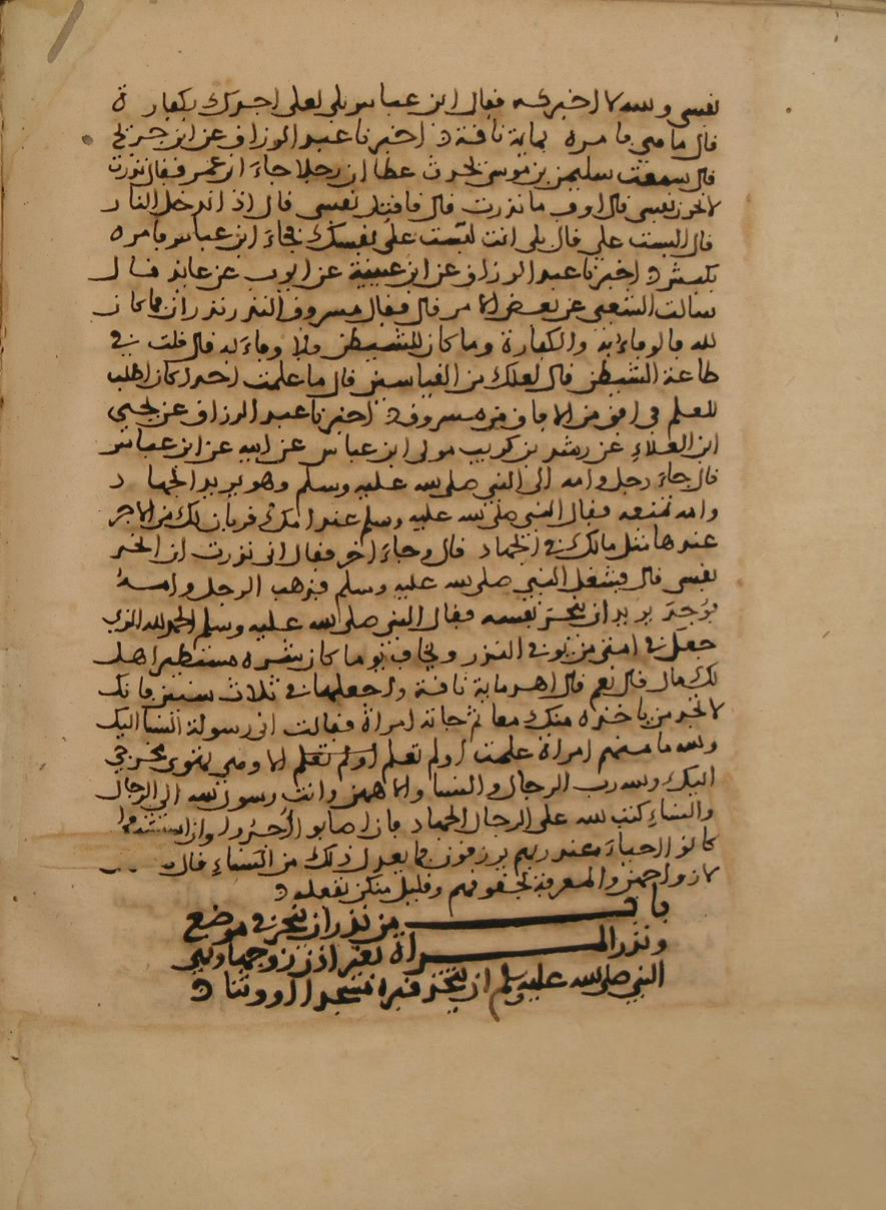 نفسي والله لا اخبركه فقال ابن عباس بلى لعلي اخبرك بكفارة
قال ما هي فامره بماية ناقة اخبرنا عبد الرزاق عن ابن جريج
قال سمعت سليمن بن موسى يحدث عطا ان رجلا جاء ابن عمر فقال نذرت
لانحرن نفسي قال اوف ما نذرت قال فاقتل نفسي قال اذا تدخل النار
قال البست علي قال بلى انت لبست على نفسك فجاء ابن عباس فامره
بكبش اخبرنا عبد الرزاق عن ابن عيينة عن ايوب عن عابد قال
سالت الشعبي عن بعض الامر قال فقال مسروق النذر نذران فما كان
لله فالوفاء به والكفارة وما كان للشيطن ولا وفاء له قال قلت في
طاعة الشيطن قال لعلك من القياسين قال ما علمت احدا كان اطلب
للعلم في افق من الافاق من مسروق اخبرنا عبد الرزاق عن يحيى
ابن العلاء عن رشد بن كريب مولى ابن عباس عن ابيه عن ابن عباس
قال جاء رجل وامه الى النبي صلى الله عليه وسلم وهو يريد الجهاد
وامه تمنعه فقال النبي صلى الله عليه وسلم عند امك قر فان لك من الاجر
عندها مثل مالك في الجهاد قال وجاء اخر فقال اني نذرت ان انحر
نفسي قال فشغل النبي صلى الله عليه وسلم فذهب الرجل وامه
فوجد يريد ان ينحر نفسه فقال النبي صلى الله عليه وسلم الحمد لله الذي
جعل في امتي من يوفي النذر ويخاف يوما كان شره مستطيرا هل
لك مال قال نعم قال اهد ماية ناقة واجعلها في ثلاث سنين فانك
لا تجد من ياخذه منك معا ثم جاته امراة فقالت اني رسولة النسا اليك
والله ما منهم امراة علمت او لم تعلم او لم تعلم الا وهي تهوى مخرجي
اليك والله رب الرجال والنسا والاههن وانت رسول الله الى الرجال
والنساء كتب الله على الرجال الجهاد فان اصابوا اجروا وان استشهدوا
كانوا احياء عند ربهم يرزقون فما يعدل ذلك من النساء قال
لازواجهن والمعرفة بحقوقهم وقليل منكن تفعله
باب من نذر ان ينحر في موضع
ونذر المراة بغير اذن زوجها ونهي
النبي صلى الله عليه وسلم ان ينحر